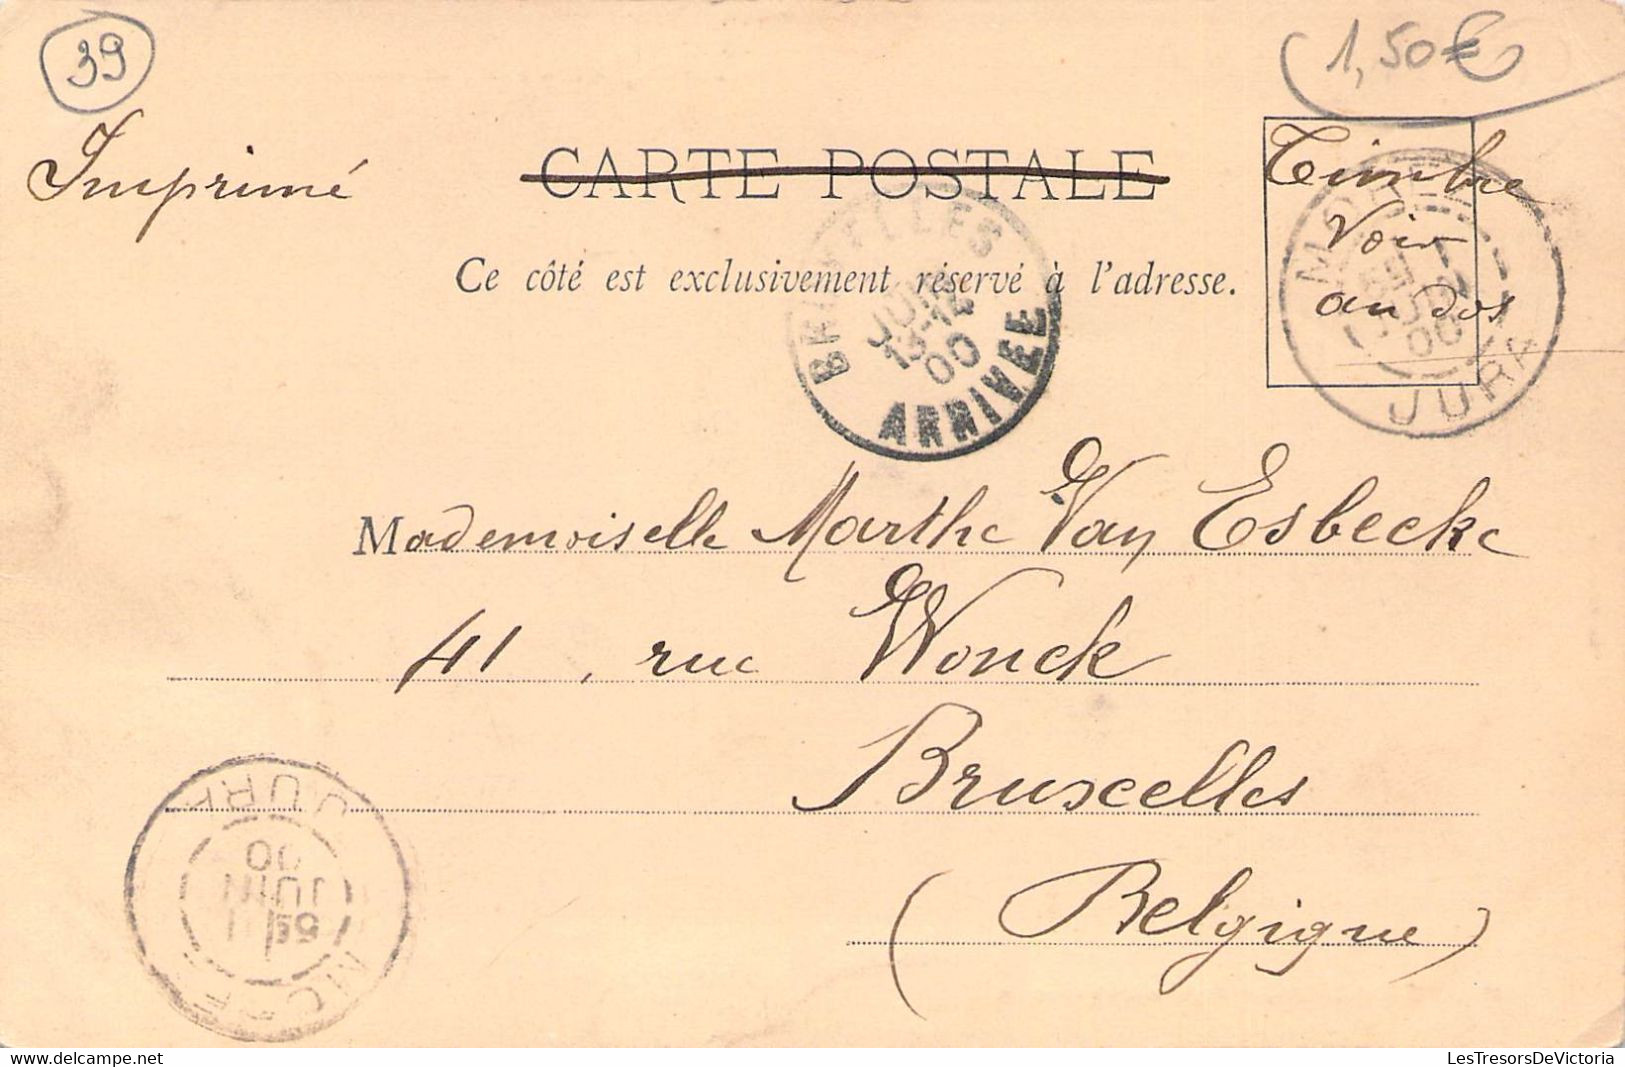 39
1,50€
Imprimé
CARTE POSTALE
Timbre
Voir
au dos
Ce côté est exclusivement réservé à l'adresse.
BRUXELLES
JUIN
13-12
00
ARRIVEE
MOREZ
JUIN
00
JURA
Mademoiselle Marthe Van Esbecke
41, rue Wonck
Bruxelles
(Belgique)
JURA
JUIN
00
LesTresorsDeVictoria